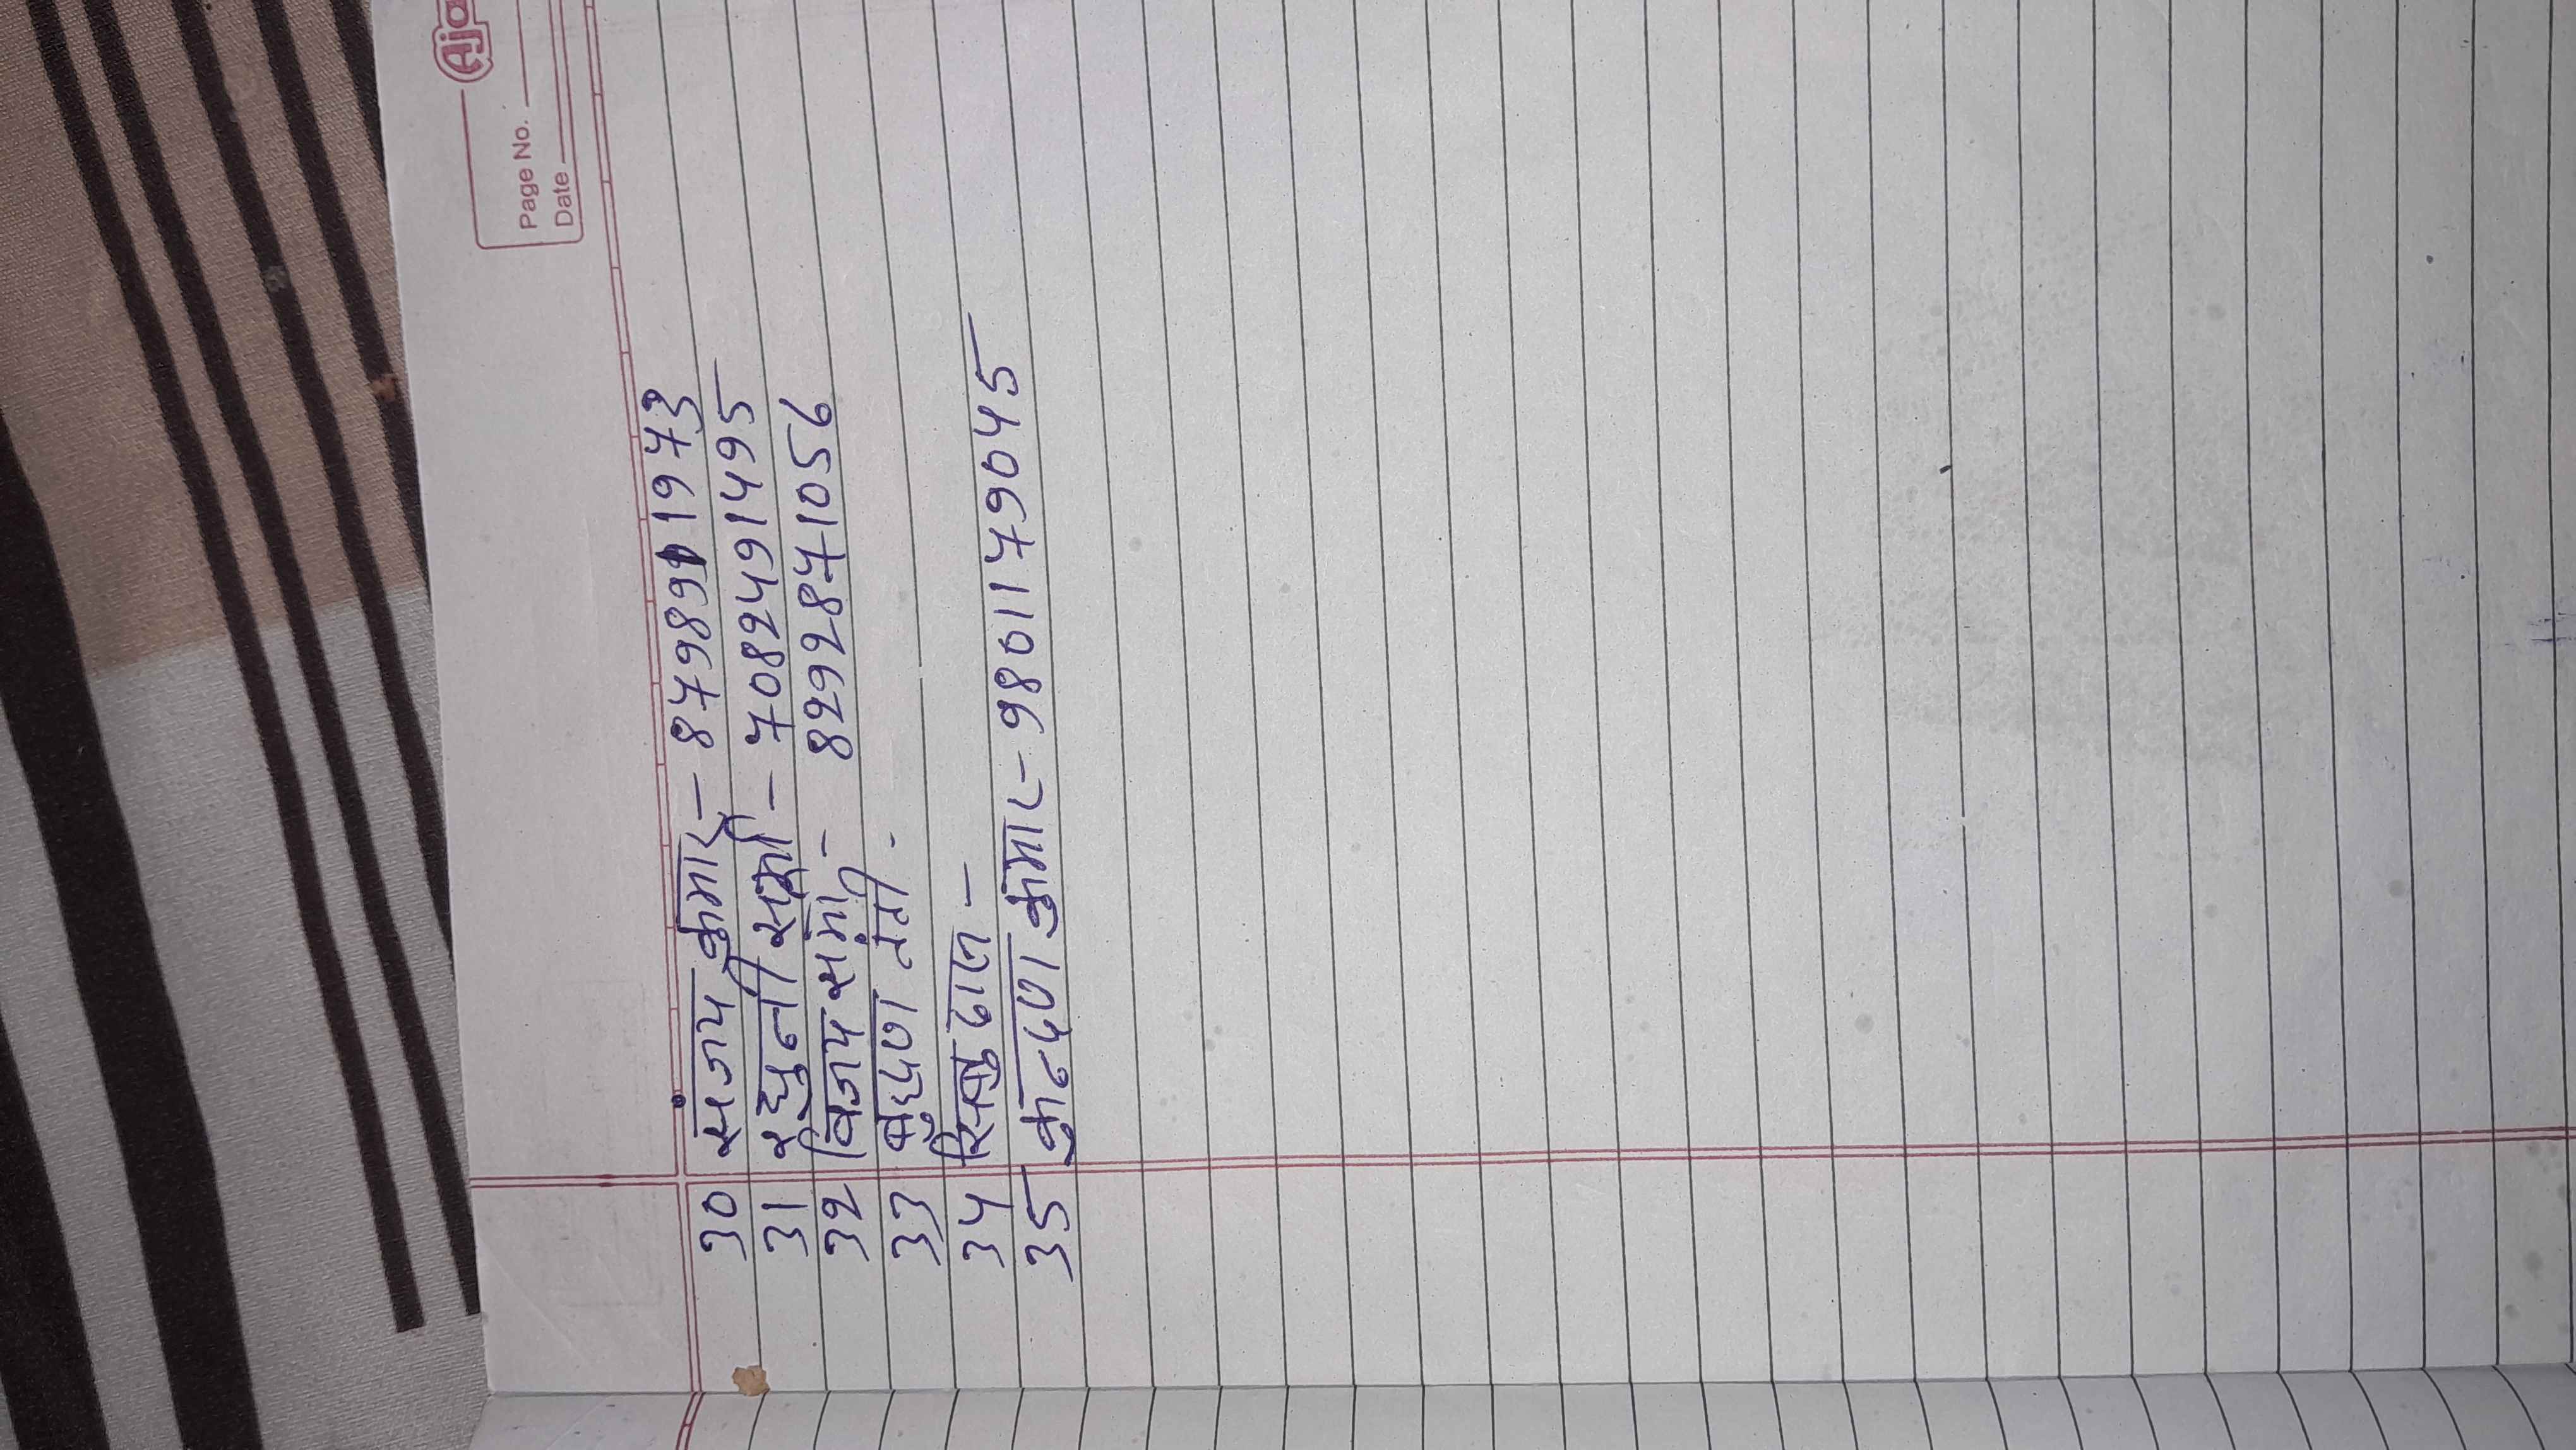 Aja
Page No.
Date
30 संजय कुमार – 8798911973
31 रघुनी शर्मा – 7082491495
32 विजय शर्मा – 8292871056
33 कृष्णा
34
35 कृष्णा कुमार – 9801179045